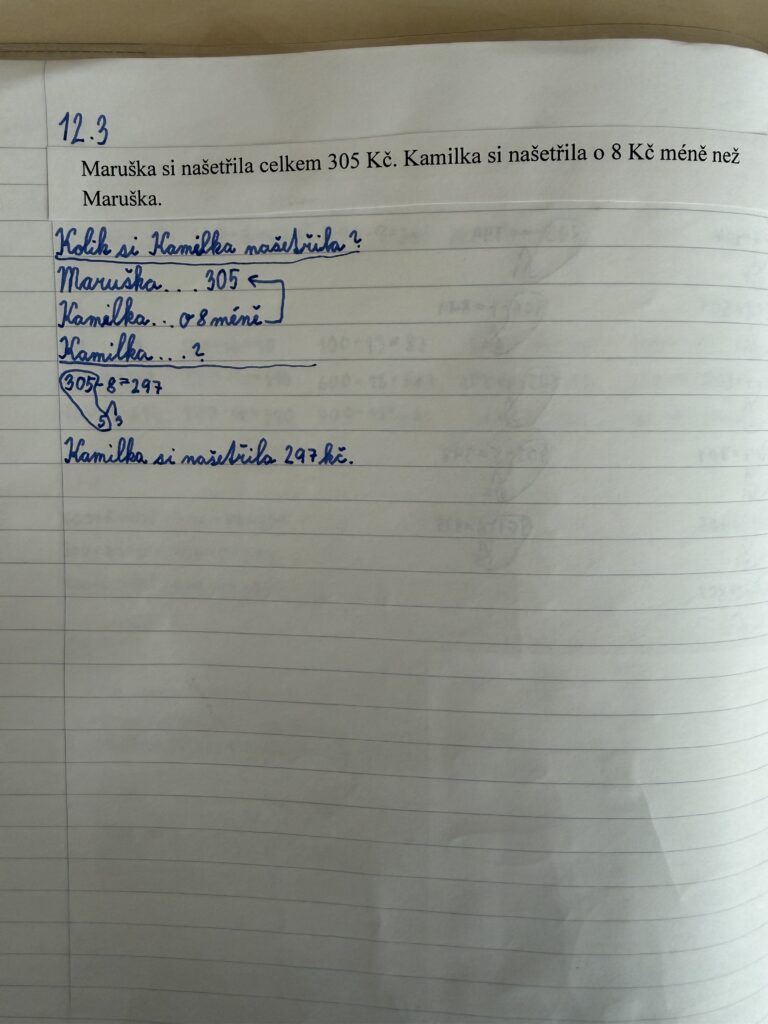 12.3
Maruška si našetřila celkem 305 Kč. Kamilka si našetřila o 8 Kč méně než
Maruška.
Kolik si Kamilka našetřila?
Maruška... 305
Kamilka... o 8 méně
Kamilka...?
305-8=297
5 3
Kamilka si našetřila 297 kč.